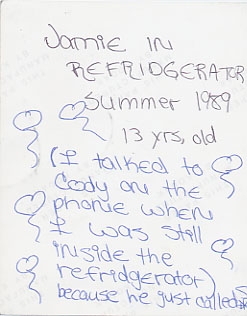 Jamie IN
REFRIDGERATOR
Summer 1989
13 yrs, old
(I talked to
Cody on the
phone when
I was still
inside the
refridgerator)
because he just called